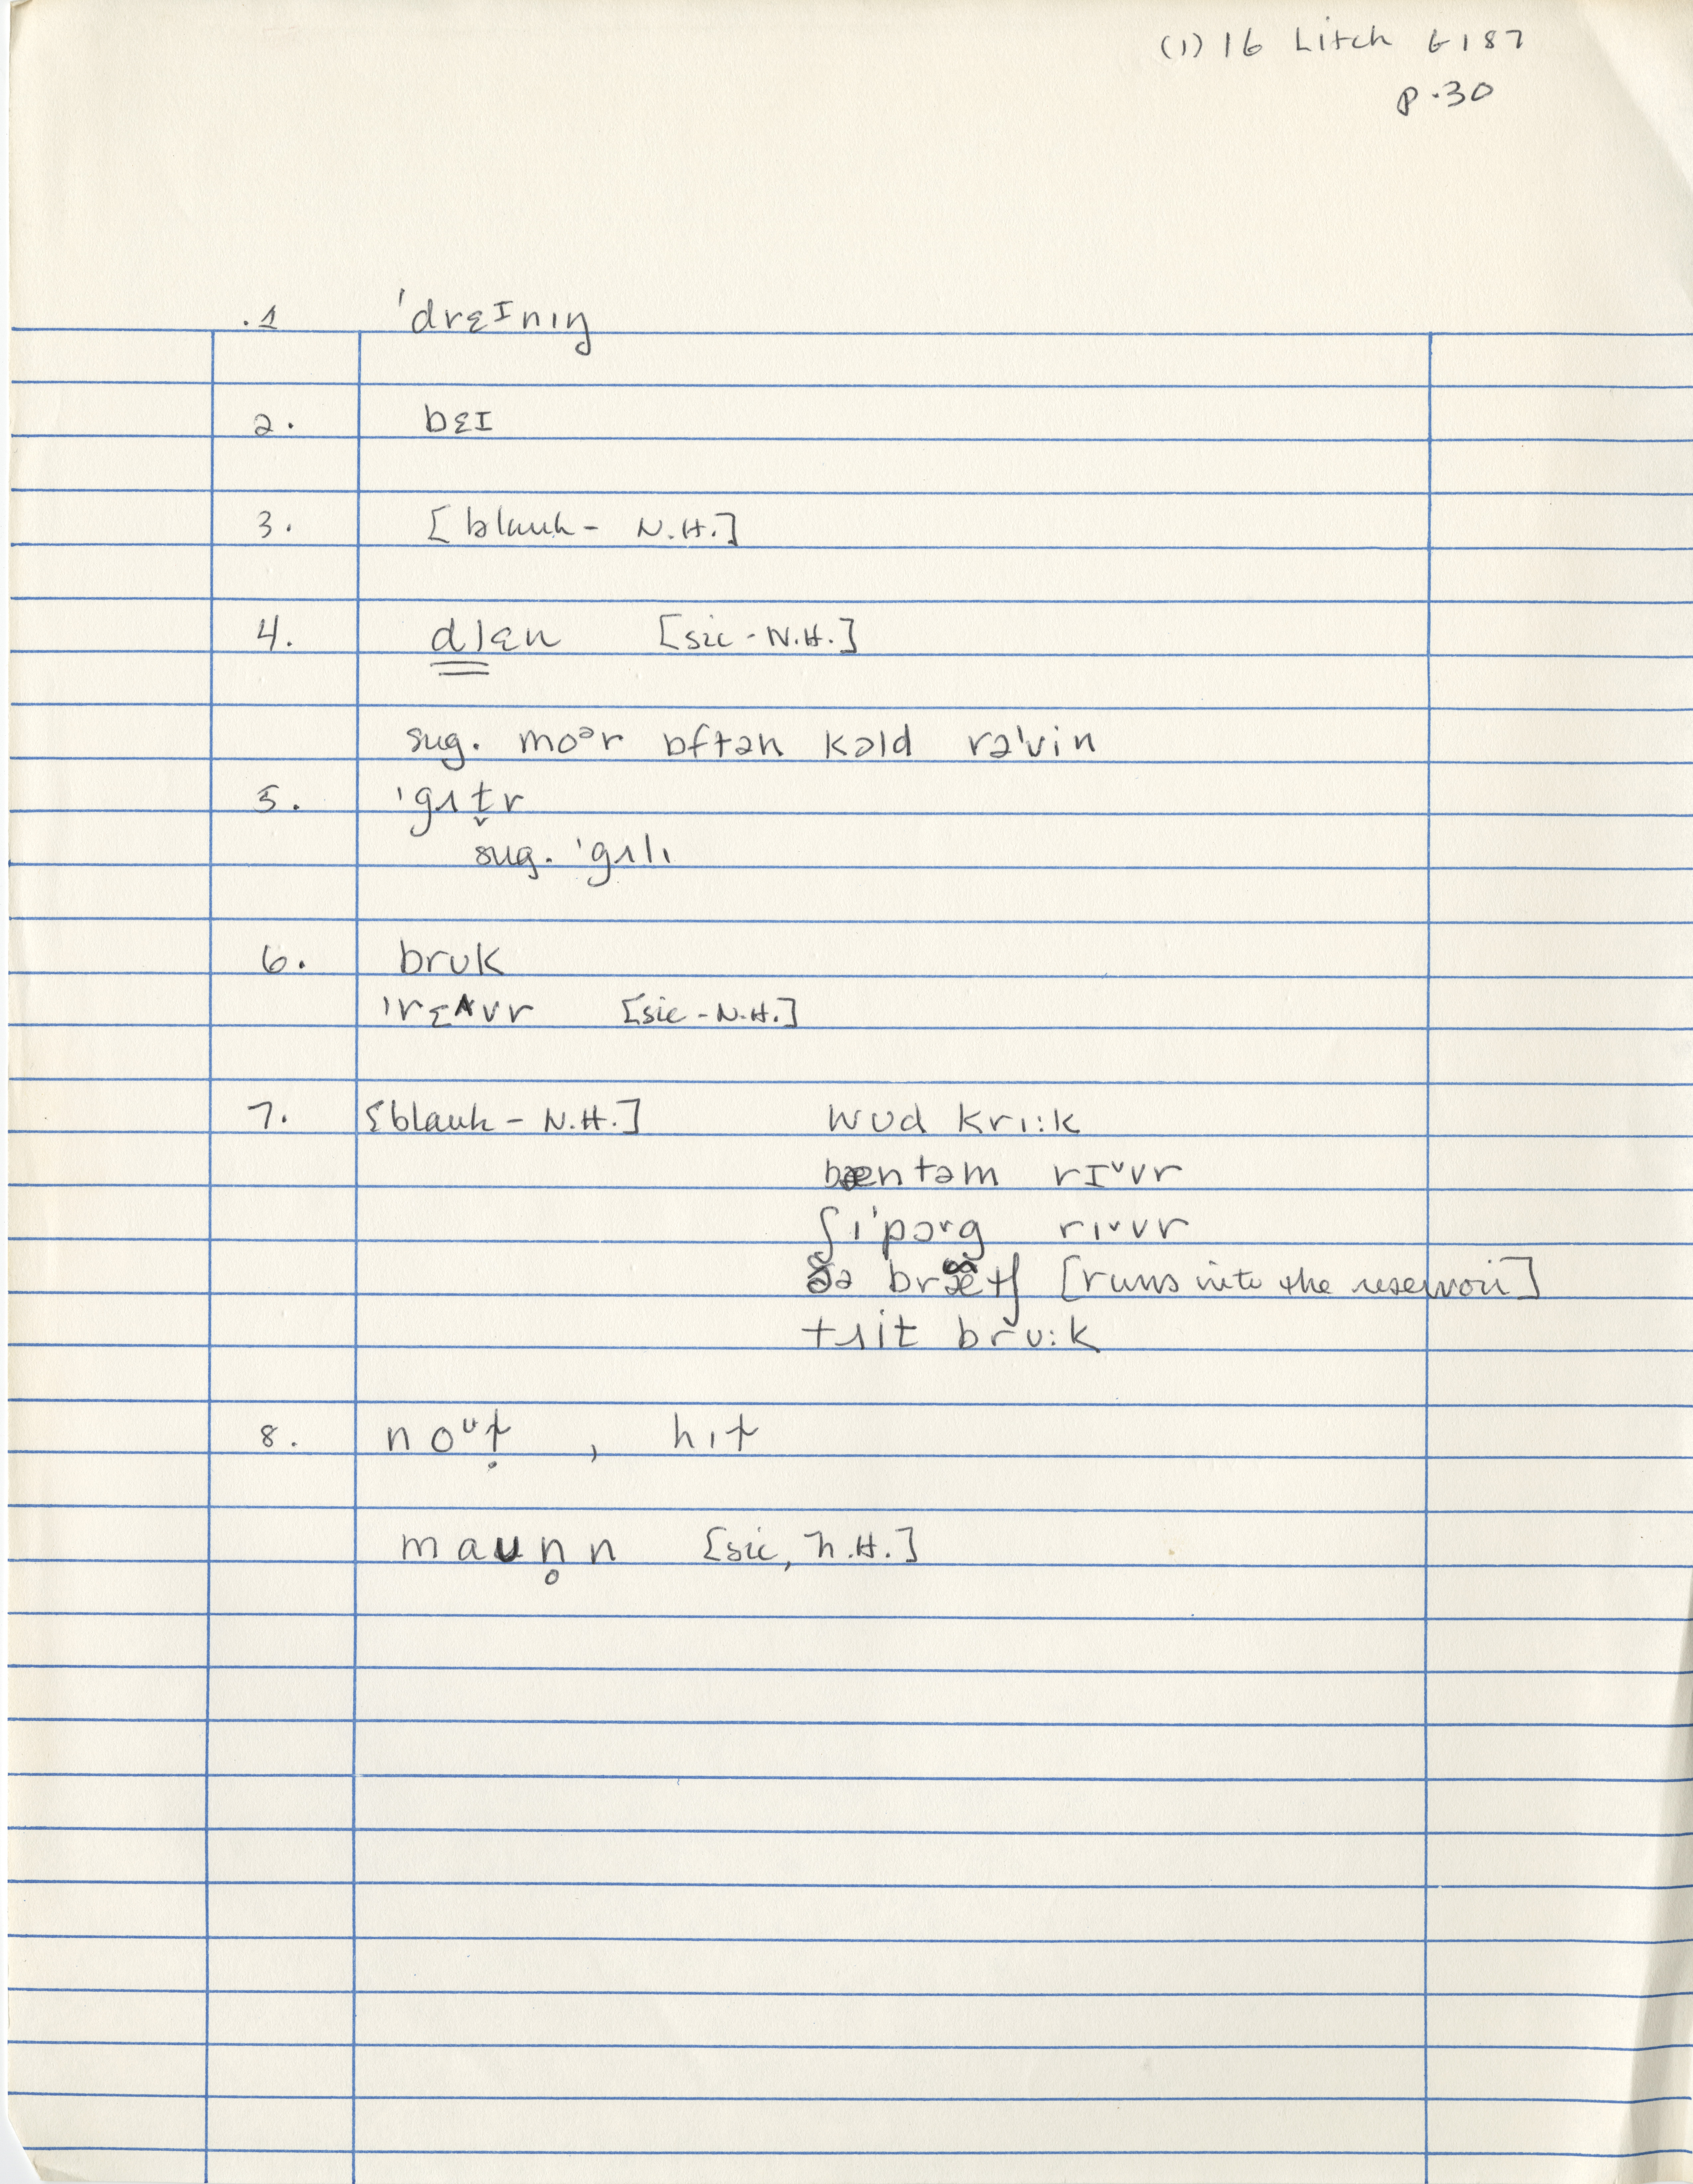 (1) 16 Litch 6187
p.30
.1 'drɛɪnɪŋ
2. bɛɪ
3. [blank - N.H.]
4. dlɛn [sic - N.H.]
sug. moᵊr ɒftən kɔld rə'vin
5. 'gʌt̬r
sug. 'gʌlɪ
6. brʊk
'rɛʌvr [sic - N.H.]
7. [blank - N.H.] wʊd krɪ:k
bæntəm rɪ˅vr
ʃɪ'pɔ˞g rɪ˅vr
ðə bræ̃tʃ [runs into the reservoir]
trʌit brʊ:k
8. noᵘt̥ , hɪt
maʊn̥n [sic, N.H.]